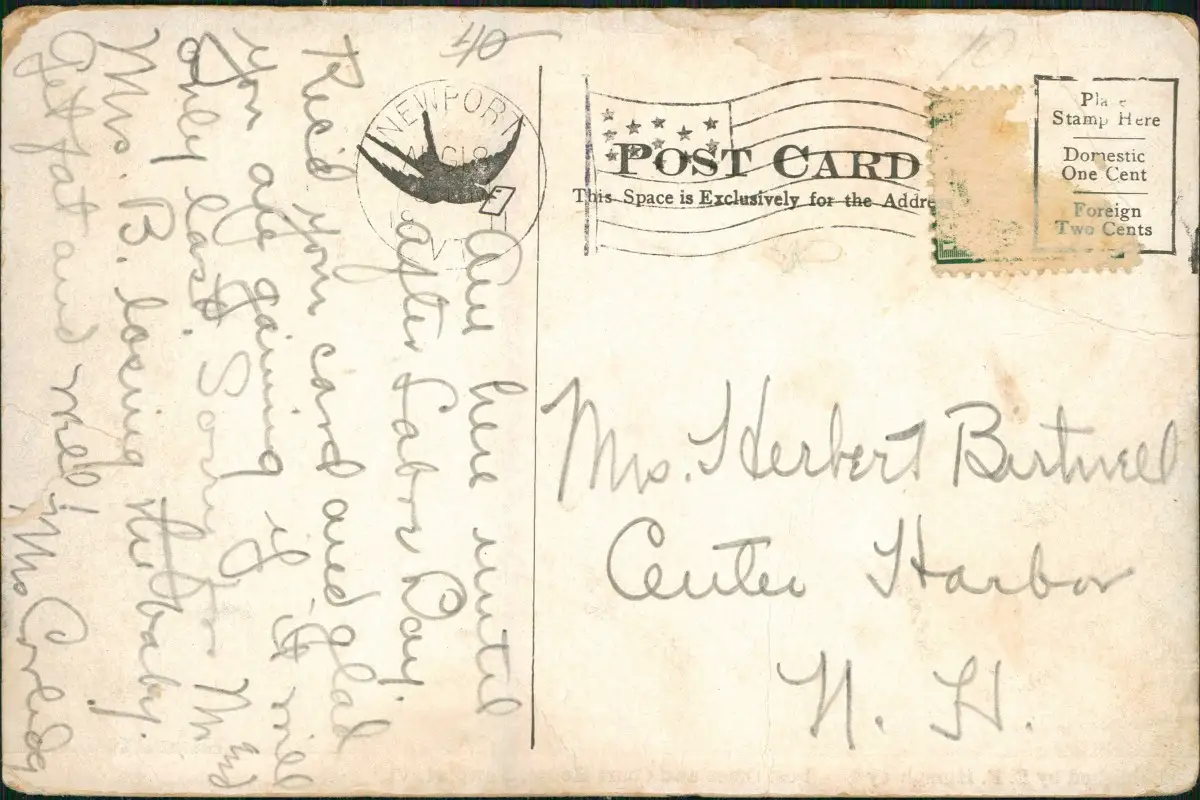 40
Are here until
after Labor Day.
Rec'd your card and glad
you are gaining if it will
only last. Sorry for Mr and
Mrs. B. losing the baby.
Get fat and well!
NEWPORT
VT
POST CARD
This Space is Exclusively for the Addre
Place
Stamp Here
Domestic
One Cent
Foreign
Two Cents
Mrs. Herbert Birtwell
Center Harbor
N. H.